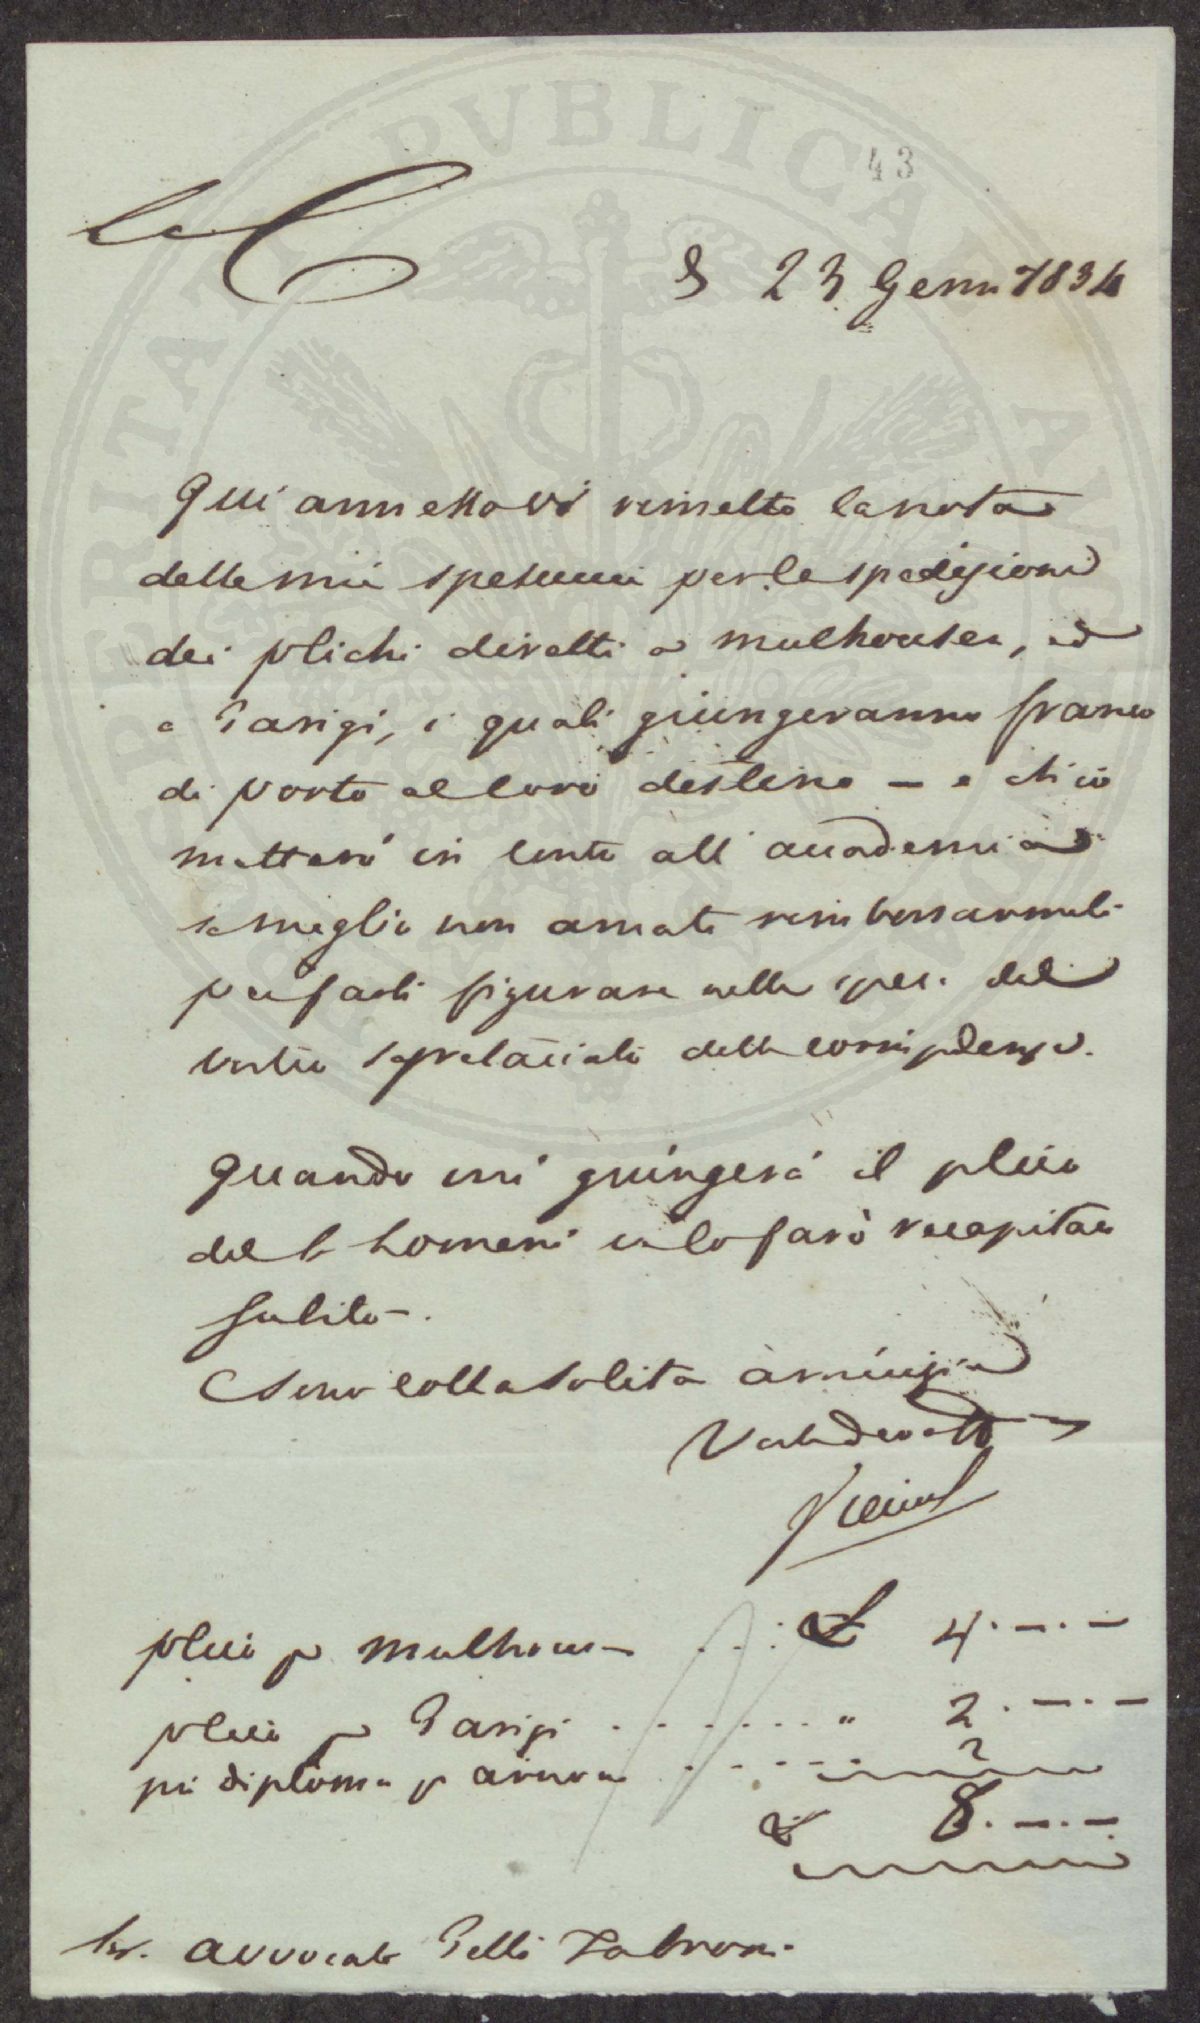 43
Le C
S 23 Genn 1834
Qui annesso Vi rimetto la nota
delle mie spesucce per le spedizioni
dei plichi diretti a Mulhousen, ed
a Parigi, i quali giungeranno franco
di porto al loro destino – e chi ciò
metterò in conto all' accademia
se meglio non amate rimborsarmeli
per farli figurare nelle spese del
vostro della corrispdenza.
Quando mi giungerà il plico
del lo farò recapitar
subito.
Sono colla solita amicizia
Vostro Devotto
plico p Mulhouse . . : £ 4. – . –
plico p Parigi . . . . . . . " 2. – . –
più diploma p . . . . . 2
£ 8. – . –
Sr. Avvocato Pelli Fabroni